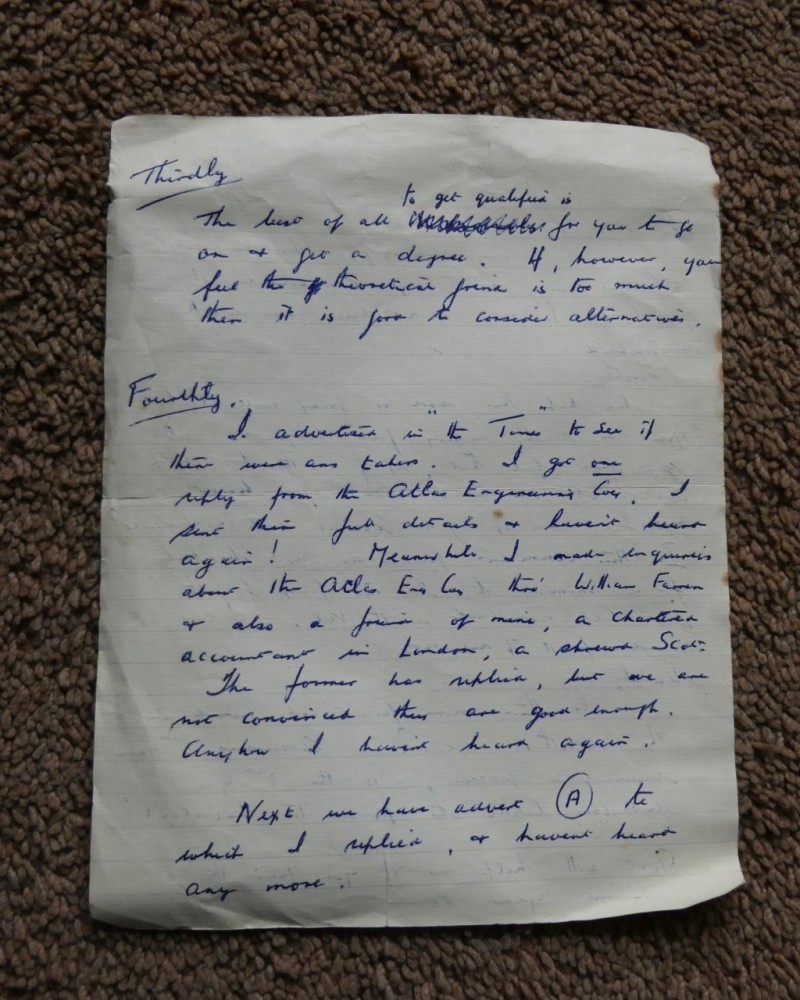 Thirdly
to get qualified is
The best of all for you to go
on & get a degree. If, however, you
feel the theoretical grind is too much
then it is good to consider alternatives.
Fourthly.
I advertised in "the Times" to see if
there were any takers. I got one
reply from the Atlas Engineering Coy. I
sent them full details, & haven't heard
again! Meanwhile I made inquiries
about the Atlas Eng Coy thro' William Farren
& also a friend of mine, a chartered
accountant in London, a shrewd Scot.
The former has replied, but we are
not convinced they are good enough.
Anyhow I haven't heard again.
Next we have advert A to
which I replied, & havent heard
any more.